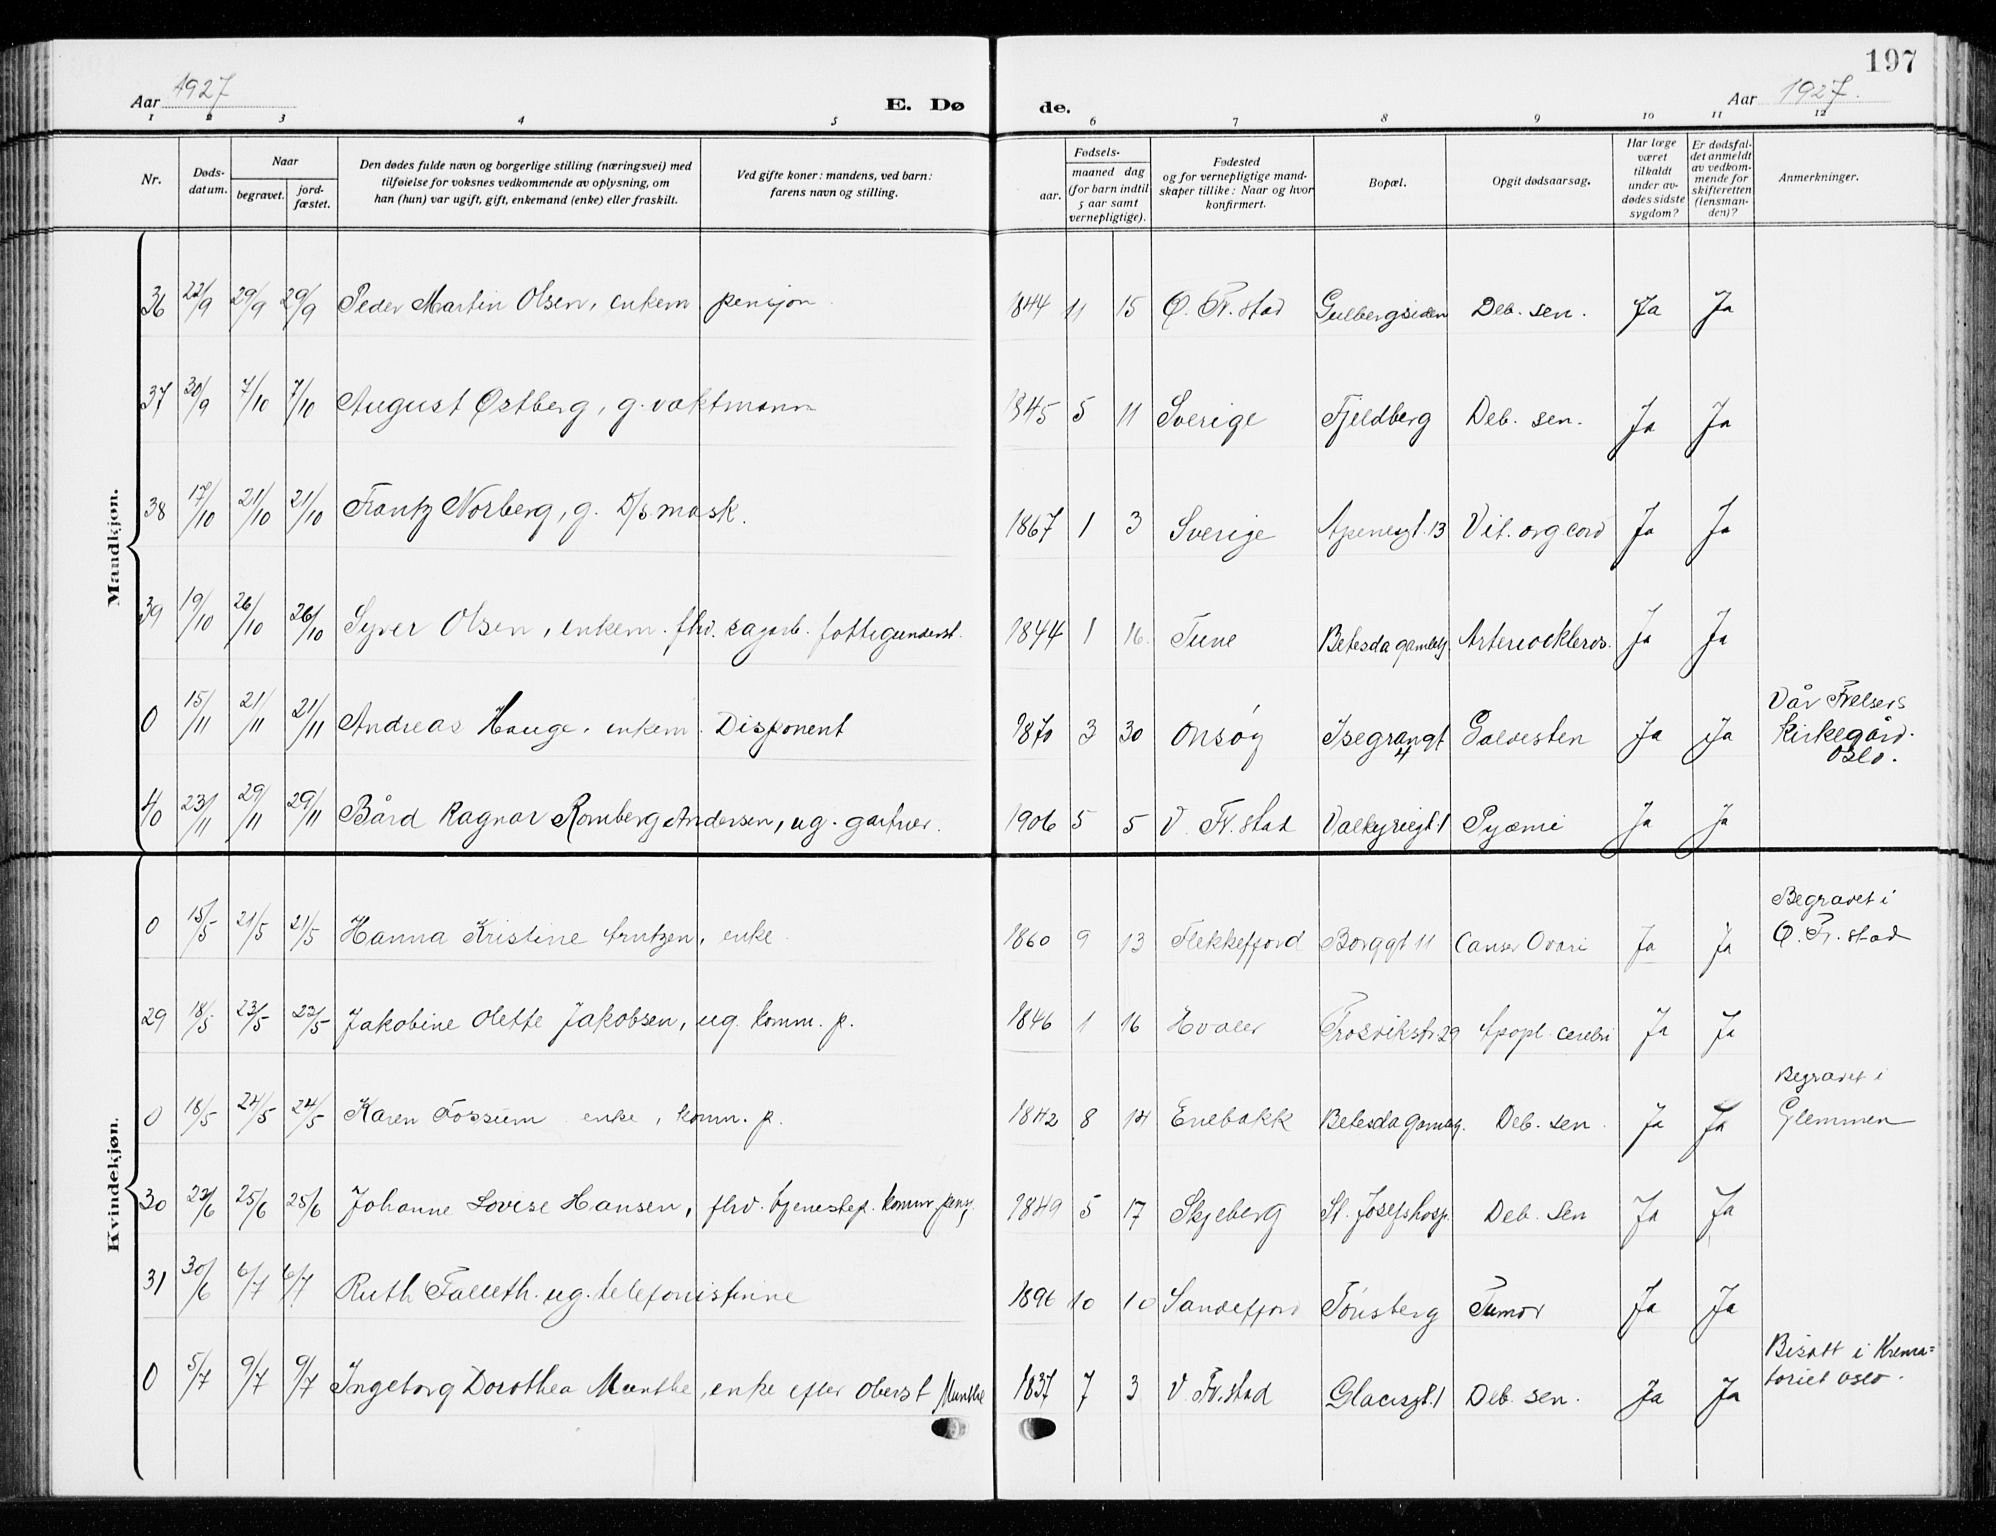 197
Aar 1927 E. Dø de. Aar 1927.
1 2 3 4 5 6 7 8 9 10 11 12
Nr. Døds-datum. Naar begravet. jord-fæstet. Den dødes fulde navn og borgerlige stilling (næringsvei) med tilføielse for voksnes vedkommende av oplysning, om han (hun) var ugift, gift, enkemand (enke) eller fraskilt. Ved gifte koner: mandens, ved barn: farens navn og stilling. Fødsels- aar. maaned dag (for barn indtil 5 aar samt vernepligtige). Fødested og for vernepligtige mand-skaper tillike: Naar og hvor konfirmert. Bopæl. Opgit dødsaarsag. Har læge været tilkaldt under av-dødes sidste sygdom? Er dødsfal-det anmeldt av vedkom-mende for skifteretten (lensman-den)? Anmerkninger.
Mandkjøn.
36 22/9 29/9 29/9 Peder Martin Olsen, enkem pensjon. 1844 11 15 Ø. Fr.stad Gulbergsiden Deb. sen. Ja Ja
37 30/9 7/10 7/10 August Østberg, g. vaktmann 1845 5 11 Sverige Fjeldberg Deb. sen. Ja Ja
38 17/10 21/10 21/10 Frantz Norberg, g. D/s mask. 1867 1 3 Sverige Apenesgt. 13 Vit. org cord Ja Ja
39 19/10 26/10 26/10 Syver Olsen, enkem. fhv. sagarb. fattigunderst. 1844 1 16. Tune Betesda gamlehj. Arterioskleros. Ja Ja
0 15/11 21/11 21/11 Andreas Hauge, enkem. Disponent 1870 3 30 Onsøy Isegrangt 4 Galdesten Ja Ja Vår Frelsers Kirkegård. Oslo.
40 23/11 29/11 29/11 Bård Ragnar Romberg Andersen, ug. gartner. 1906 5 5 V. Fr.stad Valkyriegt 1 Pyæmi Ja Ja
Kvindekjøn.
0 15/5 21/5 21/5 Hanna Kristine Arntzen, enke. 1860 9 13 Flekkefjord Borggt 11 Canser Ovari Ja Ja Begravet i Ø. Fr.stad
29 18/5 23/5 23/5 Jakobine Olette Jakobsen, ug. komm. p. 1846 1 16 Hvaler Trosvikstr. 29 Apopl. cerebri Ja Ja
0 18/5 24/5 24/5 Karen Fossum enke, komm. p. 1842 8 14 Enebakk Betesda gamleg. Deb. sen. Ja Ja Begravet i Glemmen
30 22/6 25/6 25/6 Johanne Lovise Hansen, fhv. tjenestep. komm. pensj. 1849 5 17 Skjeberg St. Josefshosp. Deb. sen Ja Ja
31 30/6 6/7 6/7 Ruth Falleth. ug. telefonistinne 1896 10 10 Sandefjord Tönsberg Tumor Ja Ja
0 5/7 9/7 9/7 Ingeborg Dorothea Munthe, enke efter Oberst Munthe 1837 7 3 V. Fr.stad Glacisgt. 1 Deb. sen. Ja Ja Bisatt i Krema=toriet Oslo.